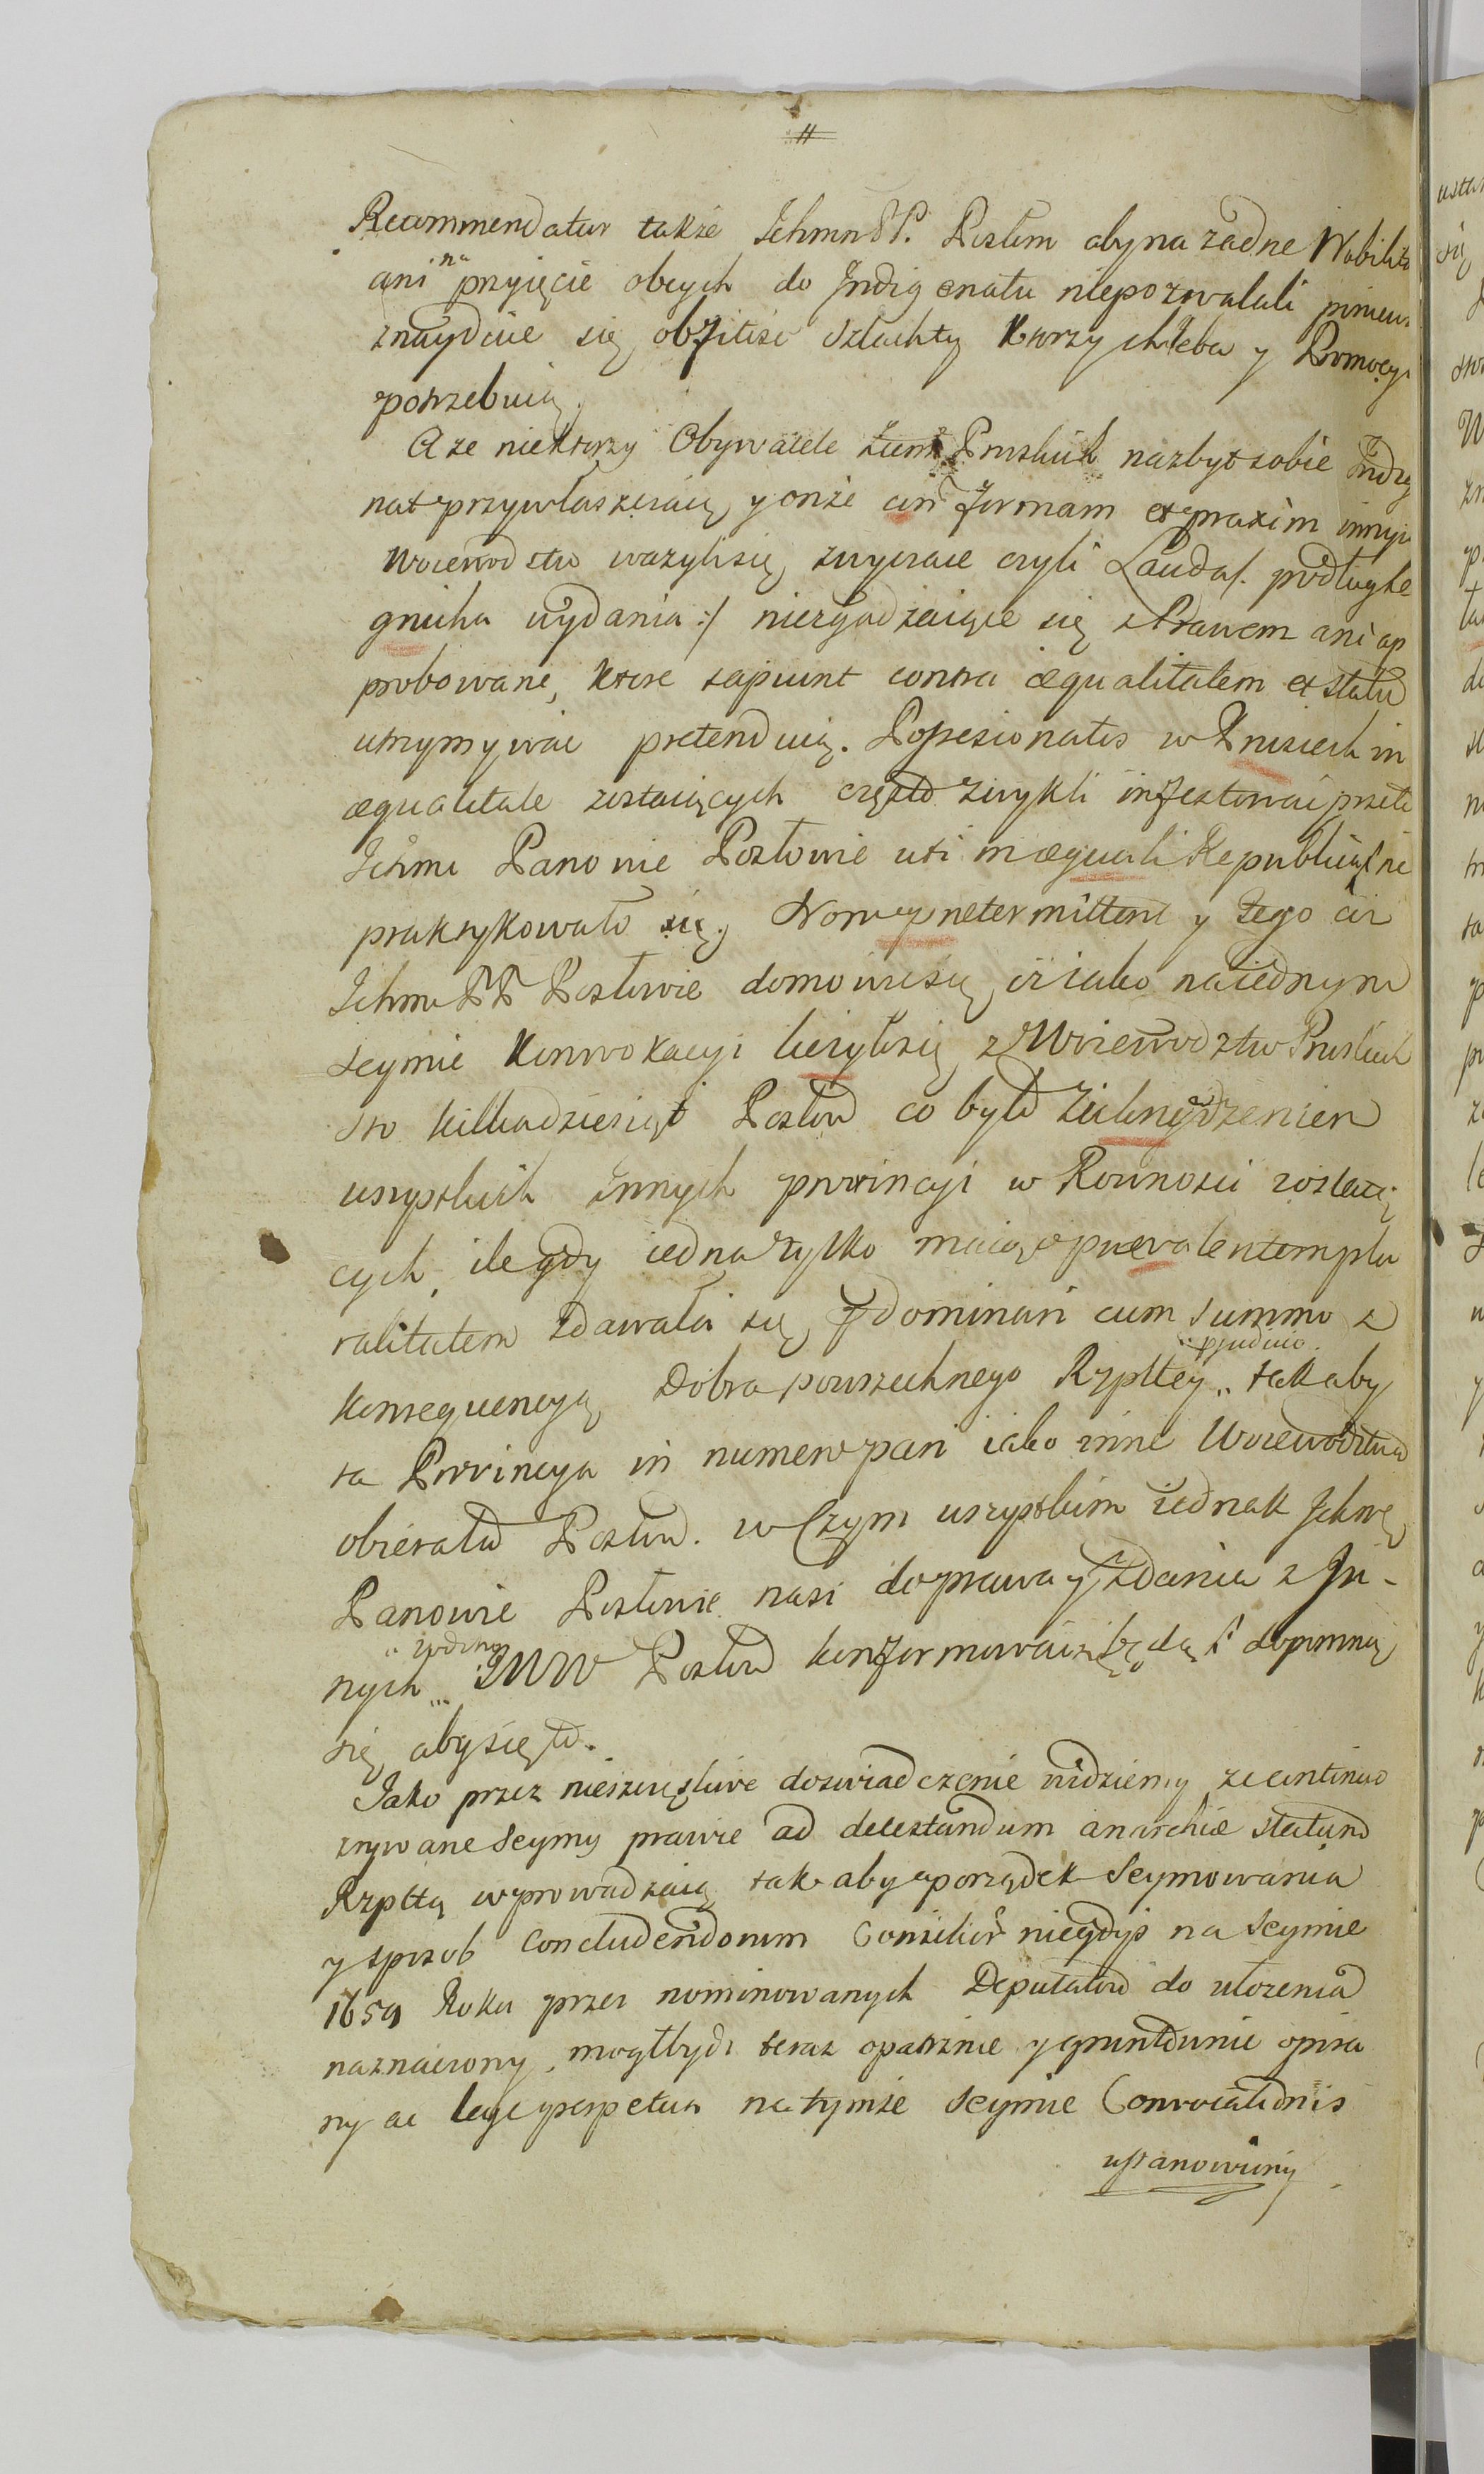 11
Recommendatur także Ichmn PP. Posłom aby na żadne Nobilita
ani na przyięcie obcych do Indigenatu niepozwalali
znayduie się obfitość Szlachty ktorzy chleba y Promocyi
potrzebuią.
A ze niektorzy Obywatele Ziem Pruskich nazbyt sobie Indig
nat przywłaszczaią y onże formam et praxim innych
Woiewodztw ważyli się, zwyczaie czyli Lauda/: podług
wydania :/ niezgadzaiące się z Prawem ani ap
probowane, ktore sapiunt contra æqualitatem et statū
utrzymywać pretenduią. Possesionatos w Prusiech in
æqualitate zostaiących często zwykli infestować przeto
Ichmć Panowie Posłowie uti in æquali Republica
praktykowało się. Non prætermittent y tego
Ichmć PP Posłowie domowić się, iż iako na iednym
Seymie Konwokacyi liczyło się z Woiewodztw Pruskich
sto kilkadziesiąt Posłow co było
wszystkich Innych prowincyi w Rownosci zostaią
cych, ile gdy iedna tylko maiąc prævalentem plu
ralitatem zdawała się dominari cum summo z
pjudicio
konsequencyą Dobra powszechnego Rzpltey .. tak aby
ta Prowincya in numero pari iako inne Woiewodztwa
obierała Posłow. w Czym wszystkim iednak Ichmć
Panowie Posłowie nasi do prawa y zdania z In-
nych ... IMW Posłow konformować się będą
się aby się to.
Jako przez nieszczęśliwe doswiadczenie widziemy ze continuo
zrywane Seymy prawie ad detestandum anarchiæ statum
Rzpltą wprowadzaią tak aby porządek Seymowania
y sposob Concludendorum Consiliorū niegdyś na Seymie
1659 Roku przez nominowanych Deputatow do ułozenia
naznaczony, mogł bydź teraz opatrznie y gruntownie opisa
ny ac lege perpetua na tymże Seymie Convocationis
ustanowiony